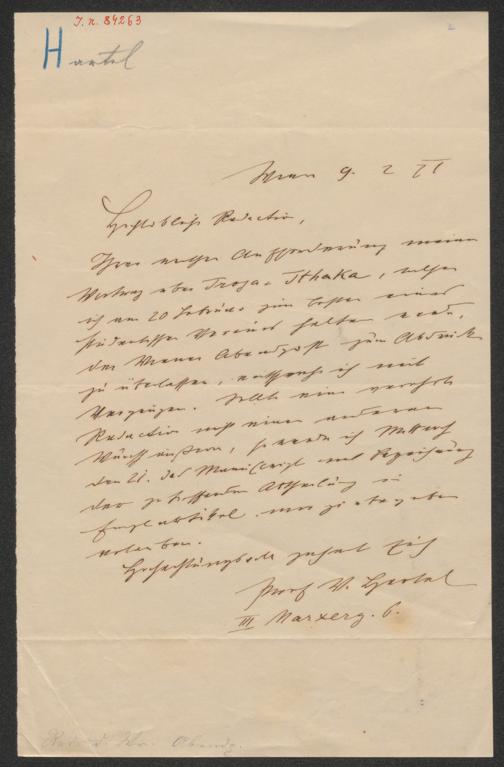 J. n. 84263
Hartel
Wien 9. 2
Hochlöbliche Redaction,
Ihrer Aufforderung meinen
Vortrag über Troja u Ithaka, welchen
ich am 20 Februar zum Besten eines
studentischen Vereines halten werde,
der Wiener Abendpost zum Abdruck
zu überlassen, entspreche ich mit
Vergnügen. Sollte eine verehrte
Redaction nicht einen anderen
Wunsch äußern, so werde ich Mittwoch
den 21. das Manuscript mit Bezeichnung
der zu treffenden Abtheilung in
Einzelartikel mir zu übergeben
erlauben.
Hochachtungsvoll zeichnet sich
Prof W. Hartel
III Marxerg. 6.
Redact. Wr. Abendp.